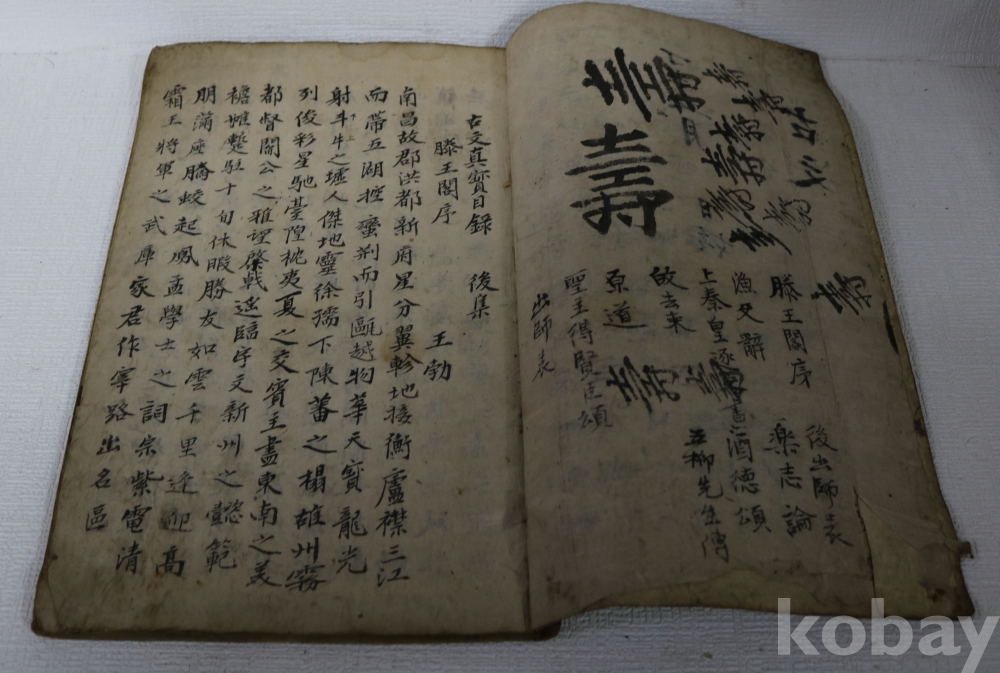 壽
壽
壽
後出師表
滕王閣序
楽志論
漁父辭
酒德頌
上秦皇逐
五柳先生傳
去来
原道
聖主得賢臣頌
出師表
古文真寶目錄 後集
滕王閣序 王勃
南昌故郡洪都新府星分翼軫地接衡廬襟三江
而帶五湖控蠻荊而引甌越物華天寶龍光
射斗牛之墟人傑地靈徐孺下陳蕃之榻雄州霧
列俊彩星馳臺隍枕夷夏之交賓主盡東南之美
都督閻公之雅望棨戟遙臨宇文新州之懿範
襜帷蹔駐十旬休暇勝友如雲千里逢迎高
朋滿座騰蛟起鳳孟學士之詞宗紫電清
霜王將軍之武庫家君作宰路出名區
kobay